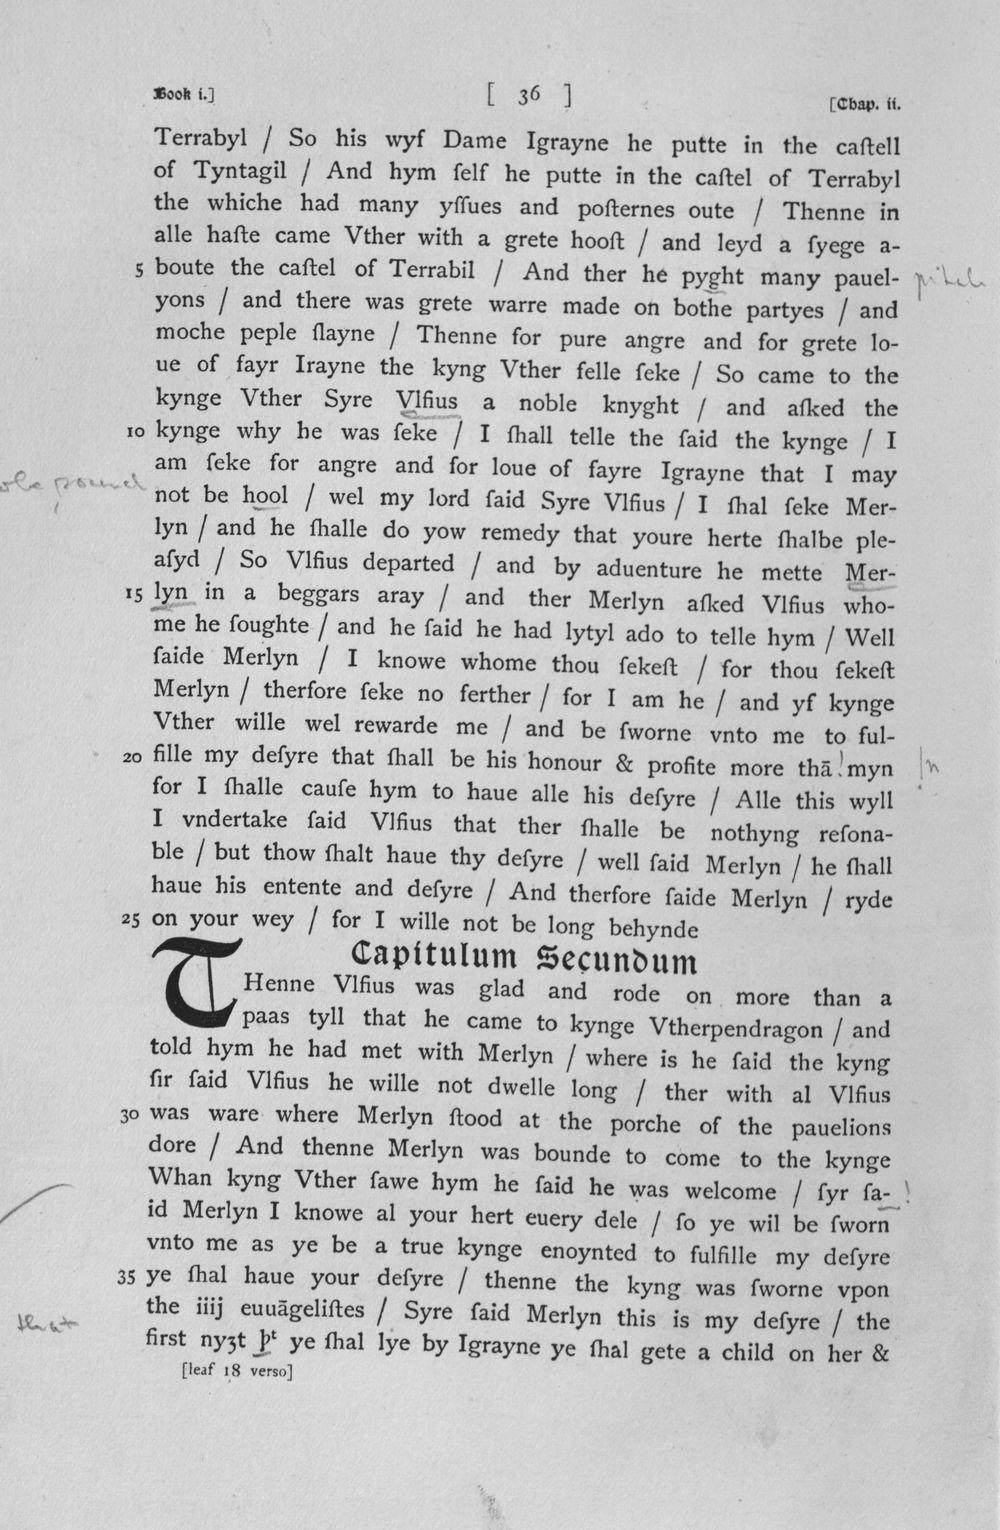 Book i.] [ 36 ] [Chap. ii.
Terrabyl / So his wyf Dame Igrayne he putte in the caſtell
of Tyntagil / And hym ſelf he putte in the caſtel of Terrabyl
the whiche had many yſſues and poſternes oute / Thenne in
alle haſte came Vther with a grete hooſt / and leyd a ſyege a-
5 boute the caſtel of Terrabil / And ther he pyght many pauel-
yons / and there was grete warre made on bothe partyes / and
moche peple ſlayne / Thenne for pure angre and for grete lo-
ue of fayr Irayne the kyng Vther felle ſeke / So came to the
kynge Vther Syre Vlfius a noble knyght / and aſked the
10 kynge why he was ſeke / I ſhall telle the ſaid the kynge / I
am ſeke for angre and for loue of fayre Igrayne that I may
not be hool / wel my lord ſaid Syre Vlfius / I ſhal ſeke Mer-
lyn / and he ſhalle do yow remedy that youre herte ſhalbe ple-
aſyd / So Vlfius departed / and by aduenture he mette Mer-
15 lyn in a beggars aray / and ther Merlyn aſked Vlfius who-
me he ſoughte / and he ſaid he had lytyl ado to telle hym / Well
ſaide Merlyn / I knowe whome thou ſekeſt / for thou ſekeſt
Merlyn / therfore ſeke no ferther / for I am he / and yf kynge
Vther wille wel rewarde me / and be ſworne vnto me to ful-
20 fille my deſyre that ſhall be his honour & profite more thā myn
for I ſhalle cauſe hym to haue alle his deſyre / Alle this wyll
I vndertake ſaid Vlfius that ther ſhalle be nothyng reſona-
ble / but thow ſhalt haue thy deſyre / well ſaid Merlyn / he ſhall
haue his entente and deſyre / And therfore ſaide Merlyn / ryde
25 on your wey / for I wille not be long behynde
Capitulum Secundum
THenne Vlfius was glad and rode on more than a
paas tyll that he came to kynge Vtherpendragon / and
told hym he had met with Merlyn / where is he ſaid the kyng
ſir ſaid Vlfius he wille not dwelle long / ther with al Vlfius
30 was ware where Merlyn ſtood at the porche of the pauelions
dore / And thenne Merlyn was bounde to come to the kynge
Whan kyng Vther ſawe hym he ſaid he was welcome / ſyr ſa-
id Merlyn I knowe al your hert euery dele / ſo ye wil be ſworn
vnto me as ye be a true kynge enoynted to fulfille my deſyre
35 ye ſhal haue your deſyre / thenne the kyng was ſworne vpon
the iiij euuāgeliſtes / Syre ſaid Merlyn this is my deſyre / the
first nyȝt þᵗ ye ſhal lye by Igrayne ye ſhal gete a child on her &
[leaf 18 verso]
that